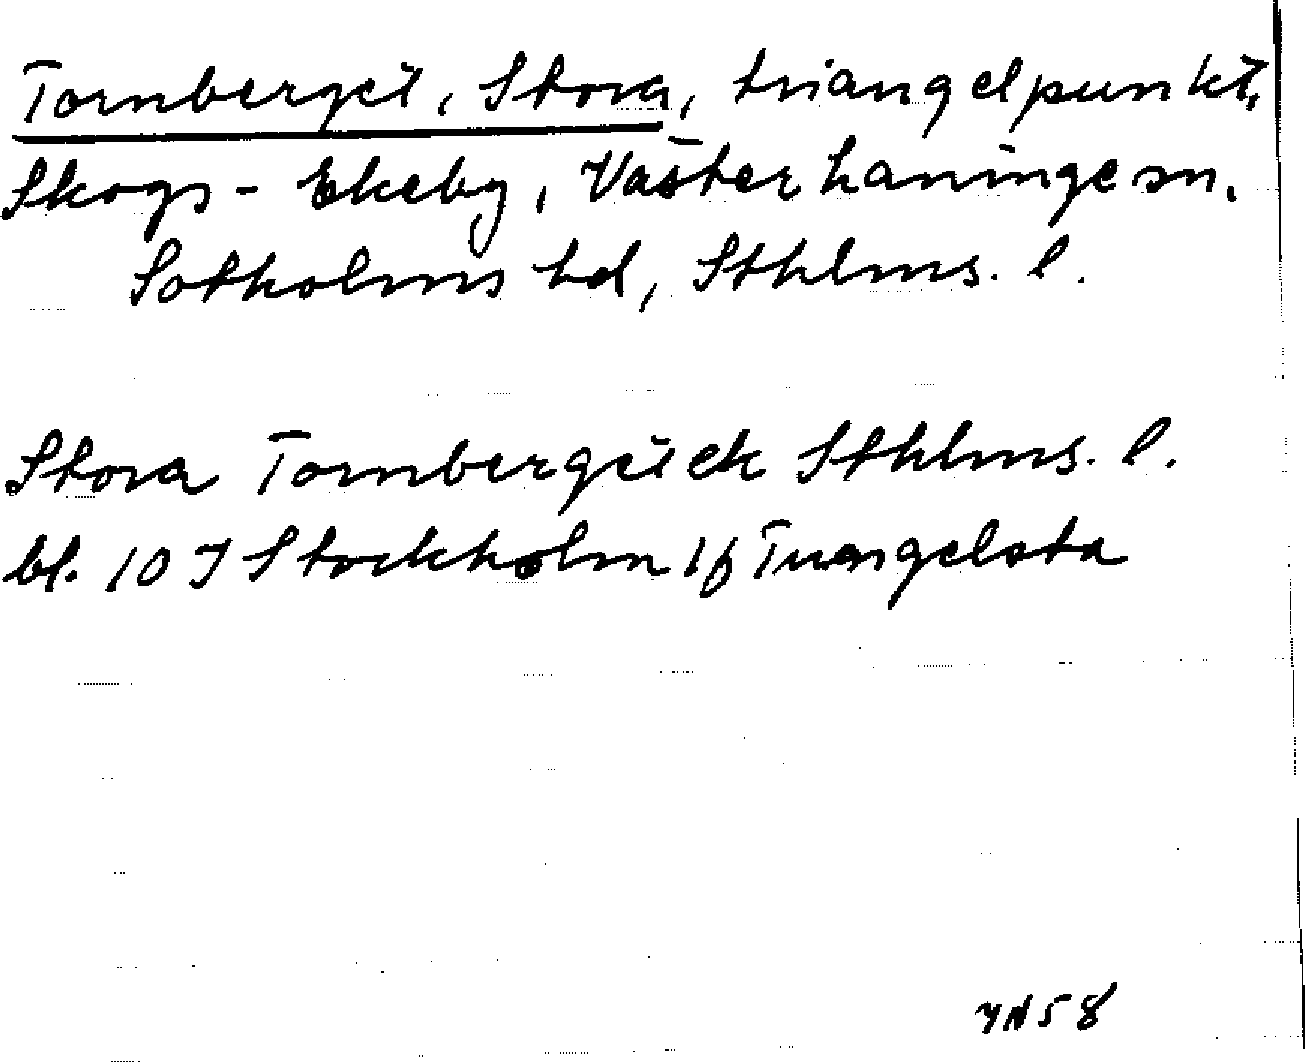 Tornberget, Stora, triangelpunkt,
Skogs-Ekeby, Västerhaninge sn.
Sotholms hd, Sthlms. l.
Stora Tornberget ek Sthlms. l.
bl. 10 I Stockholm 1f Tungelsta